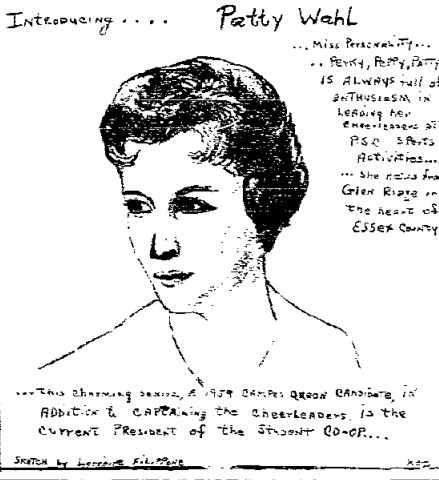 INTRODUCING.... Patty Wahl
...Miss Personality...
.. Perky, Peppy, Patty
IS ALWAYS full of
ENTHUSIASM in
LEADING her
cheerleaders at
P.S.C Sports
Activities...
... She hails from
Glen Ridge in
the heart of
ESSEX County
...this charming senior, a 1959 CAMPUS QUEEN CANDIDATE, in
ADDITION to CAPTAINING the Cheerleaders, is the
Current President of the Student CO-OP....
SKETCH by Lorraine